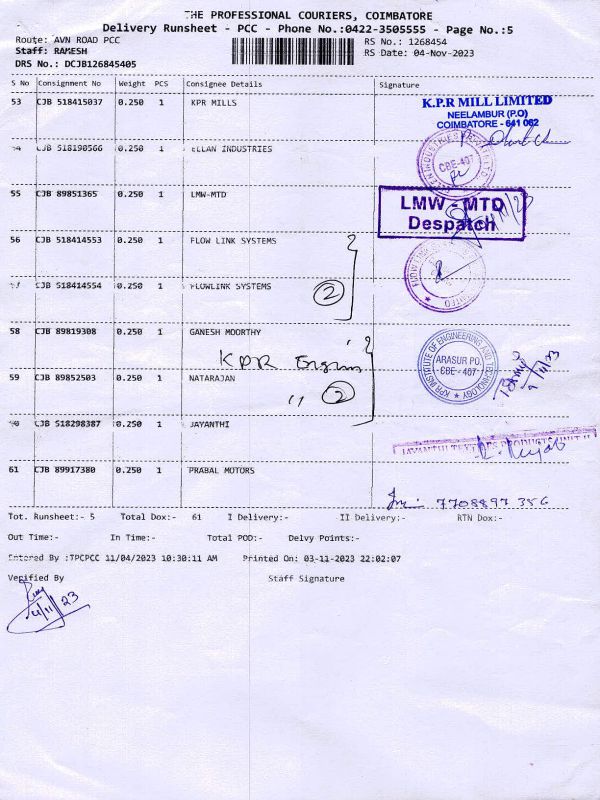 THE PROFESSIONAL COURIERS, COIMBATORE
Delivery Runsheet - PCC - Phone No.:0422-3505555 - Page No.:5
Route: AVN ROAD PCC
RS No.: 1268454
Staff: RAMESH
RS Date: 04-Nov-2023
DRS No.: DCJB126845405
S No Consignment No Weight PCS Consignee Details Signature
53 CJB 518415037 0.250 1 KPR MILLS
K.P.R MILL LIMITED
NEELAMBUR (P.O)
COIMBATORE - 641 062
54 CJB 518190566 0.250 1 ELLAN INDUSTRIES
CBE-407
55 CJB 89851365 0.250 1 LMW-MTD
LMW - MTD
Despatch
56 CJB 518414553 0.250 1 FLOW LINK SYSTEMS
57 CJB 518414554 0.250 1 FLOWLINK SYSTEMS
2
58 CJB 89819308 0.250 1 GANESH MOORTHY
KPR
KPR INSTITUTE OF ENGINEERING AND TECHNOLOGY
ARASUR PO.
CBE - 407
59 CJB 89852503 0.250 1 NATARAJAN
" 2
60 CJB 518298387 0.250 1 JAYANTHI
61 CJB 89917380 0.250 1 PRABAL MOTORS
7708897356
Tot. Runsheet:- 5 Total Dox:- 61 I Delivery:- II Delivery:- RTN Dox:-
Out Time:- In Time:- Total POD:- Delvy Points:-
Entered By :TPCPCC 11/04/2023 10:30:11 AM Printed On: 03-11-2023 22:02:07
Verified By Staff Signature
4/11/23